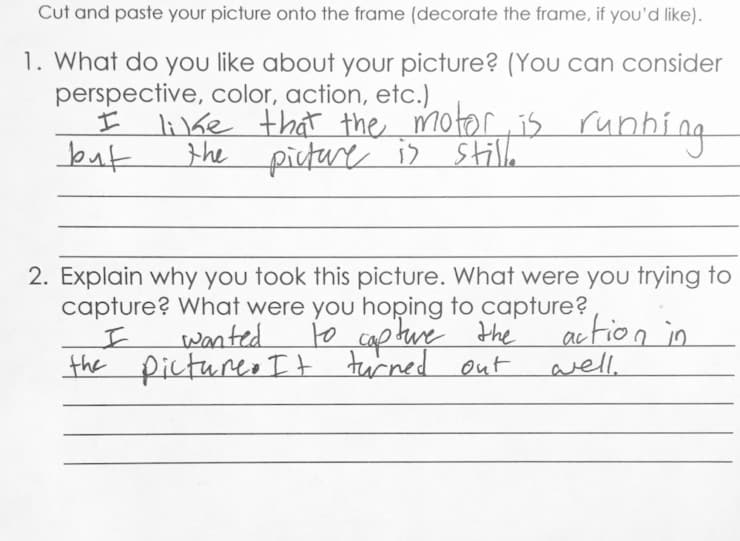 Cut and paste your picture onto the frame (decorate the frame, if you'd like).
1. What do you like about your picture? (You can consider
perspective, color, action, etc.)
I like that the motor is running
but the picture is still.
2. Explain why you took this picture. What were you trying to
capture? What were you hoping to capture?
I wanted to capture the action in
the picture. It turned out well.